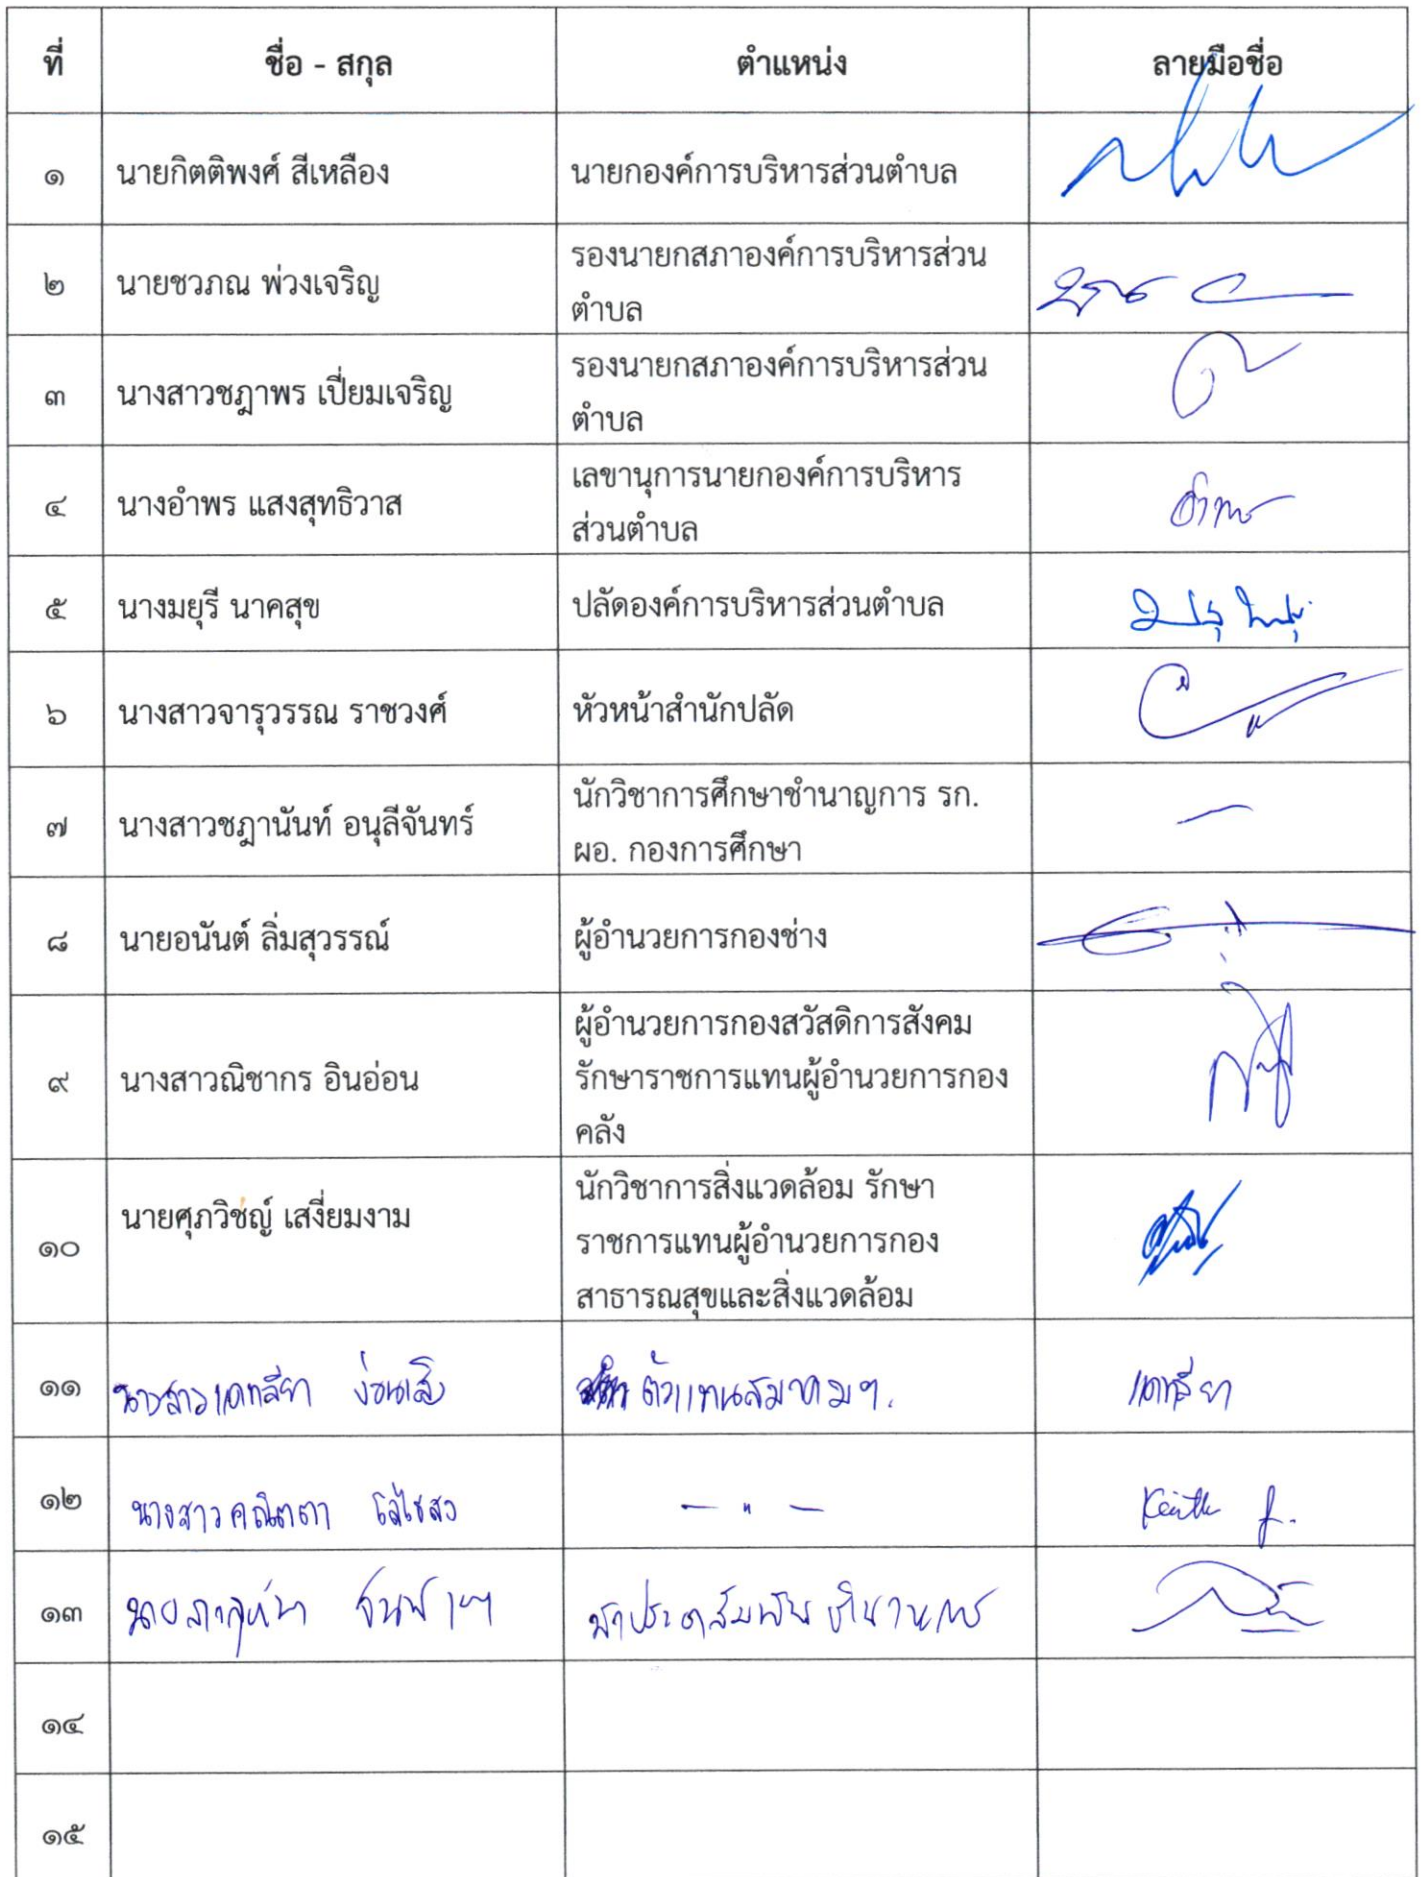 ที่ ชื่อ - สกุล ตำแหน่ง ลายมือชื่อ
๑ นายกิตติพงศ์ สีเหลือง นายกองค์การบริหารส่วนตำบล
๒ นายชวภณ พ่วงเจริญ รองนายกสภาองค์การบริหารส่วน
ตำบล
๓ นางสาวชฎาพร เปี่ยมเจริญ รองนายกสภาองค์การบริหารส่วน
ตำบล
๔ นางอำพร แสงสุทธิวาส เลขานุการนายกองค์การบริหาร
ส่วนตำบล
อำพร
๕ นางมยุรี นาคสุข ปลัดองค์การบริหารส่วนตำบล
๖ นางสาวจารุวรรณ ราชวงศ์ หัวหน้าสำนักปลัด
๗ นางสาวชฎานันท์ อนุลีจันทร์ นักวิชาการศึกษาชำนาญการ รก.
ผอ. กองการศึกษา
๘ นายอนันต์ ลิ่มสุวรรณ์ ผู้อำนวยการกองช่าง
๙ นางสาวณิชากร อินอ่อน ผู้อำนวยการกองสวัสดิการสังคม
รักษาราชการแทนผู้อำนวยการกอง
คลัง
๑๐ นายศุภวิชญ์ เสงี่ยมงาม นักวิชาการสิ่งแวดล้อม รักษา
ราชการแทนผู้อำนวยการกอง
สาธารณสุขและสิ่งแวดล้อม
๑๑ นางสาวแคทลียา ตัวแทนสมาคมฯ. แคทลียา
๑๒ นางสาวคณิตตา - " -
๑๓
๑๔
๑๕